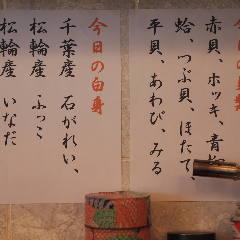 赤貝、ホッキ、青柳
蛤、つぶ貝、ほたて、
平貝、あわび、みる
今日の白身
千葉産 石がれい、
松輪産 ふっこ
松輪産 いなだ